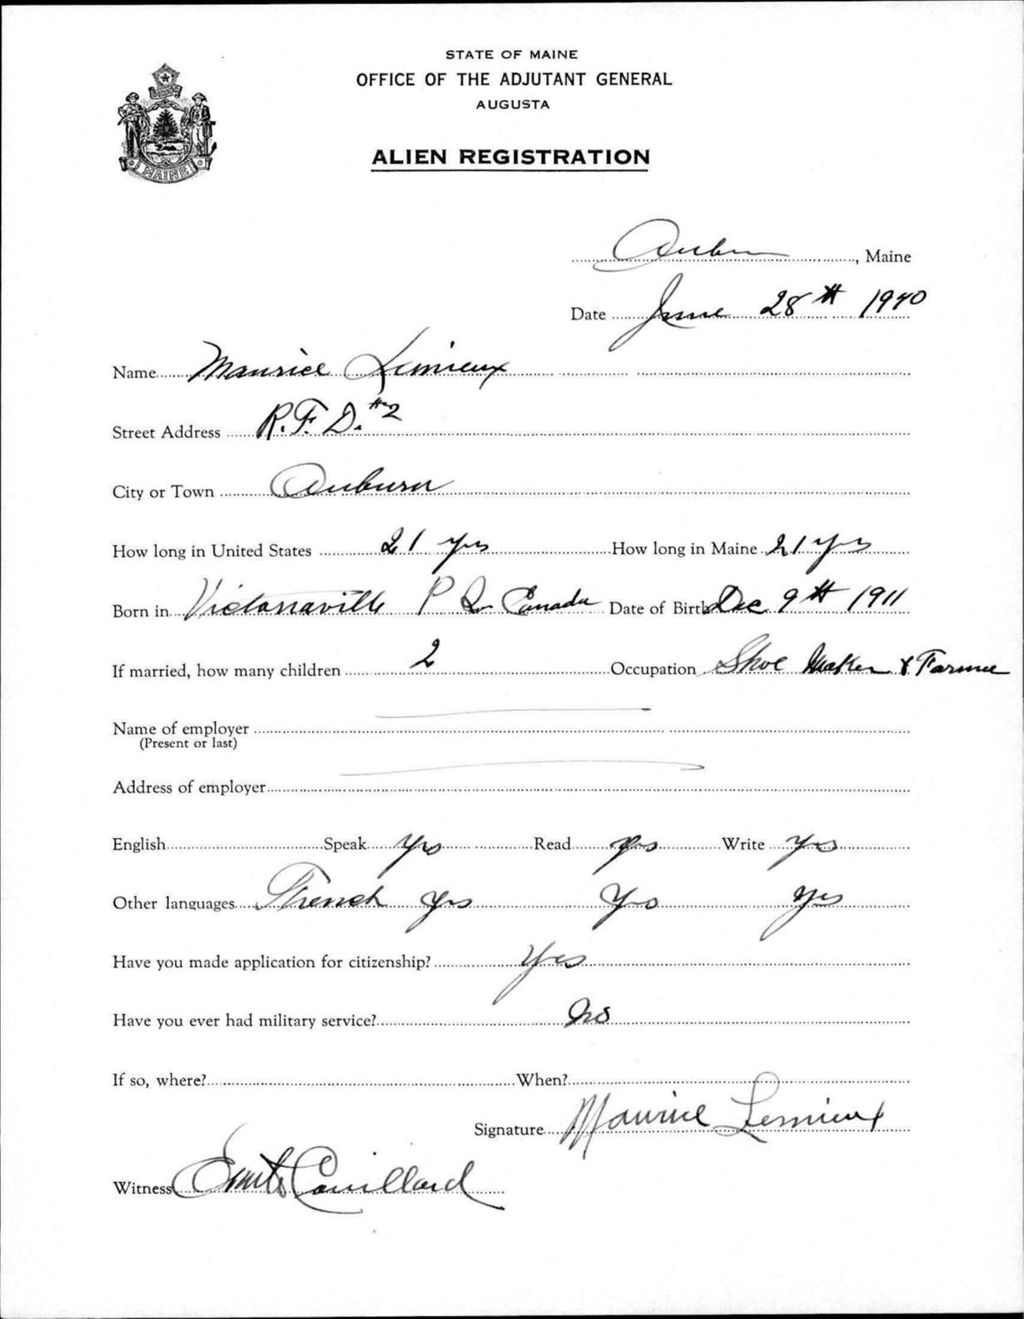 STATE OF MAINE
OFFICE OF THE ADJUTANT GENERAL
AUGUSTA
ALIEN REGISTRATION
MAINE
Auburn, Maine
Date June 28th 1940
Name Maurice Lemieux
Street Address R.F.D. #2
City or Town Auburn
How long in United States 21 yrs How long in Maine 21 yrs
Born in Victoriaville P Q Canada Date of Birth Dec 9th 1911
If married, how many children 2 Occupation Shoe Maker & Farmer
Name of employer
(Present or last)
Address of employer
English Speak yes Read yes Write yes
Other languages French yes yes yes
Have you made application for citizenship? Yes
Have you ever had military service? No
If so, where? When?
Signature Maurice Lemieux
Witness Couillard